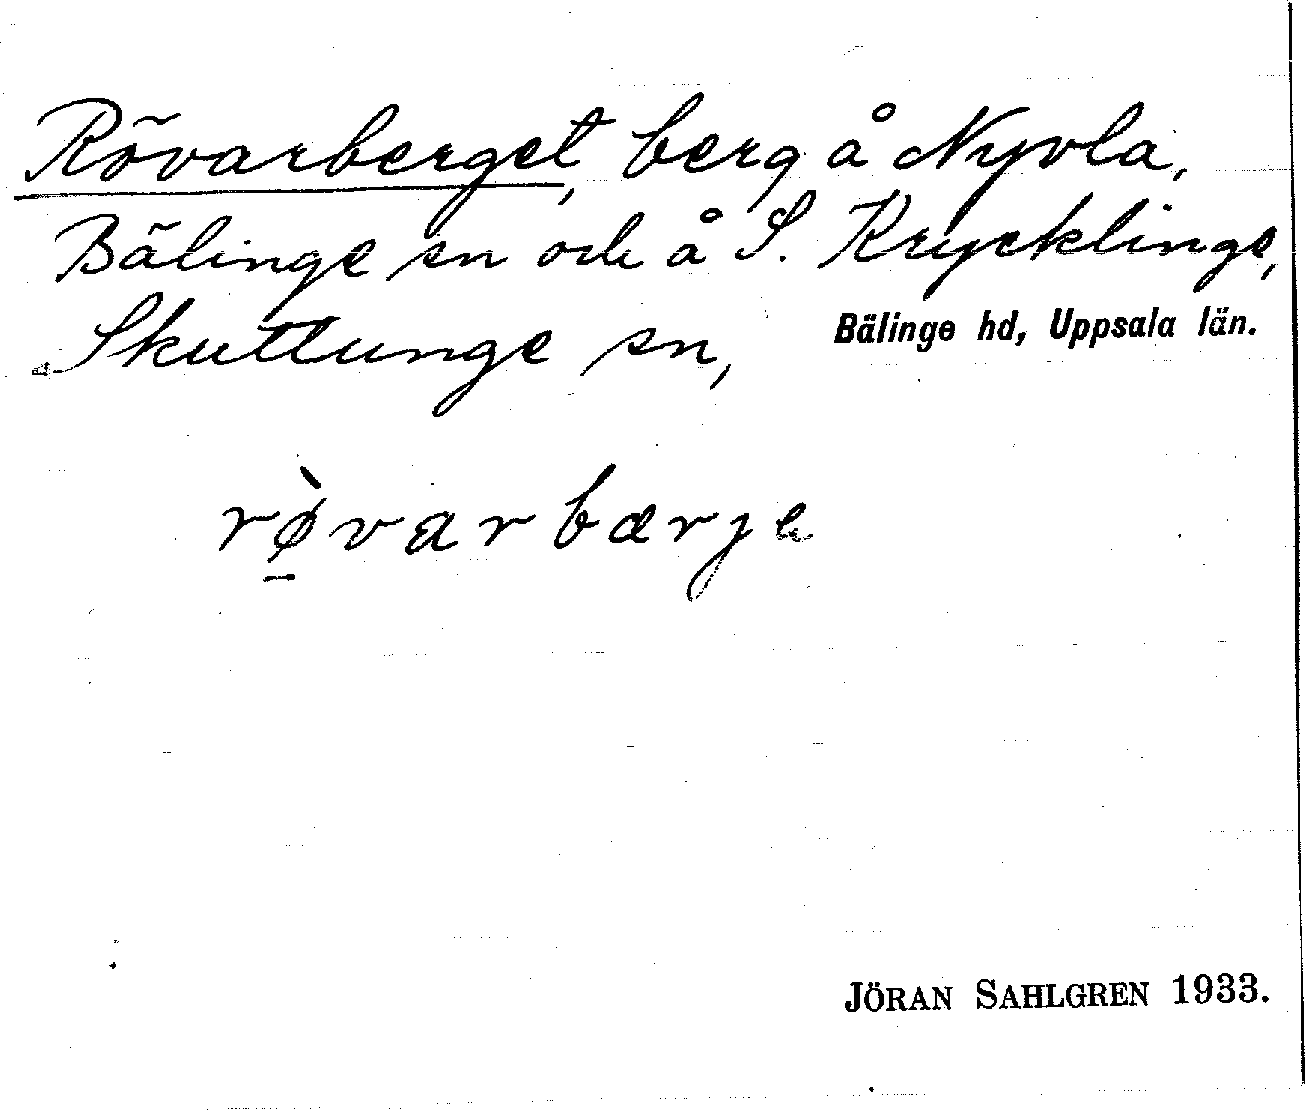 Rövarberget, berg å Nyvla,
Bälinge sn och å S. Krycklinge,
Skuttunge sn, Bälinge hd, Uppsala län.
rø̀varbærje
JÖRAN SAHLGREN 1933.